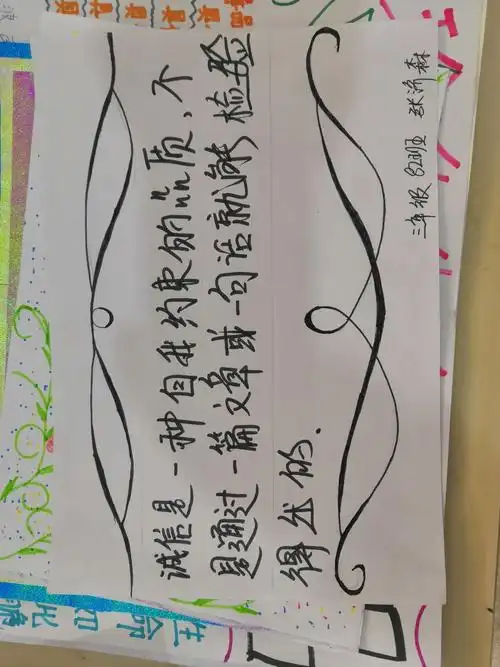 诚信是一种自我约束的品质,不
是通过一篇文章或一句话就能检验
得出的.
三年级82班